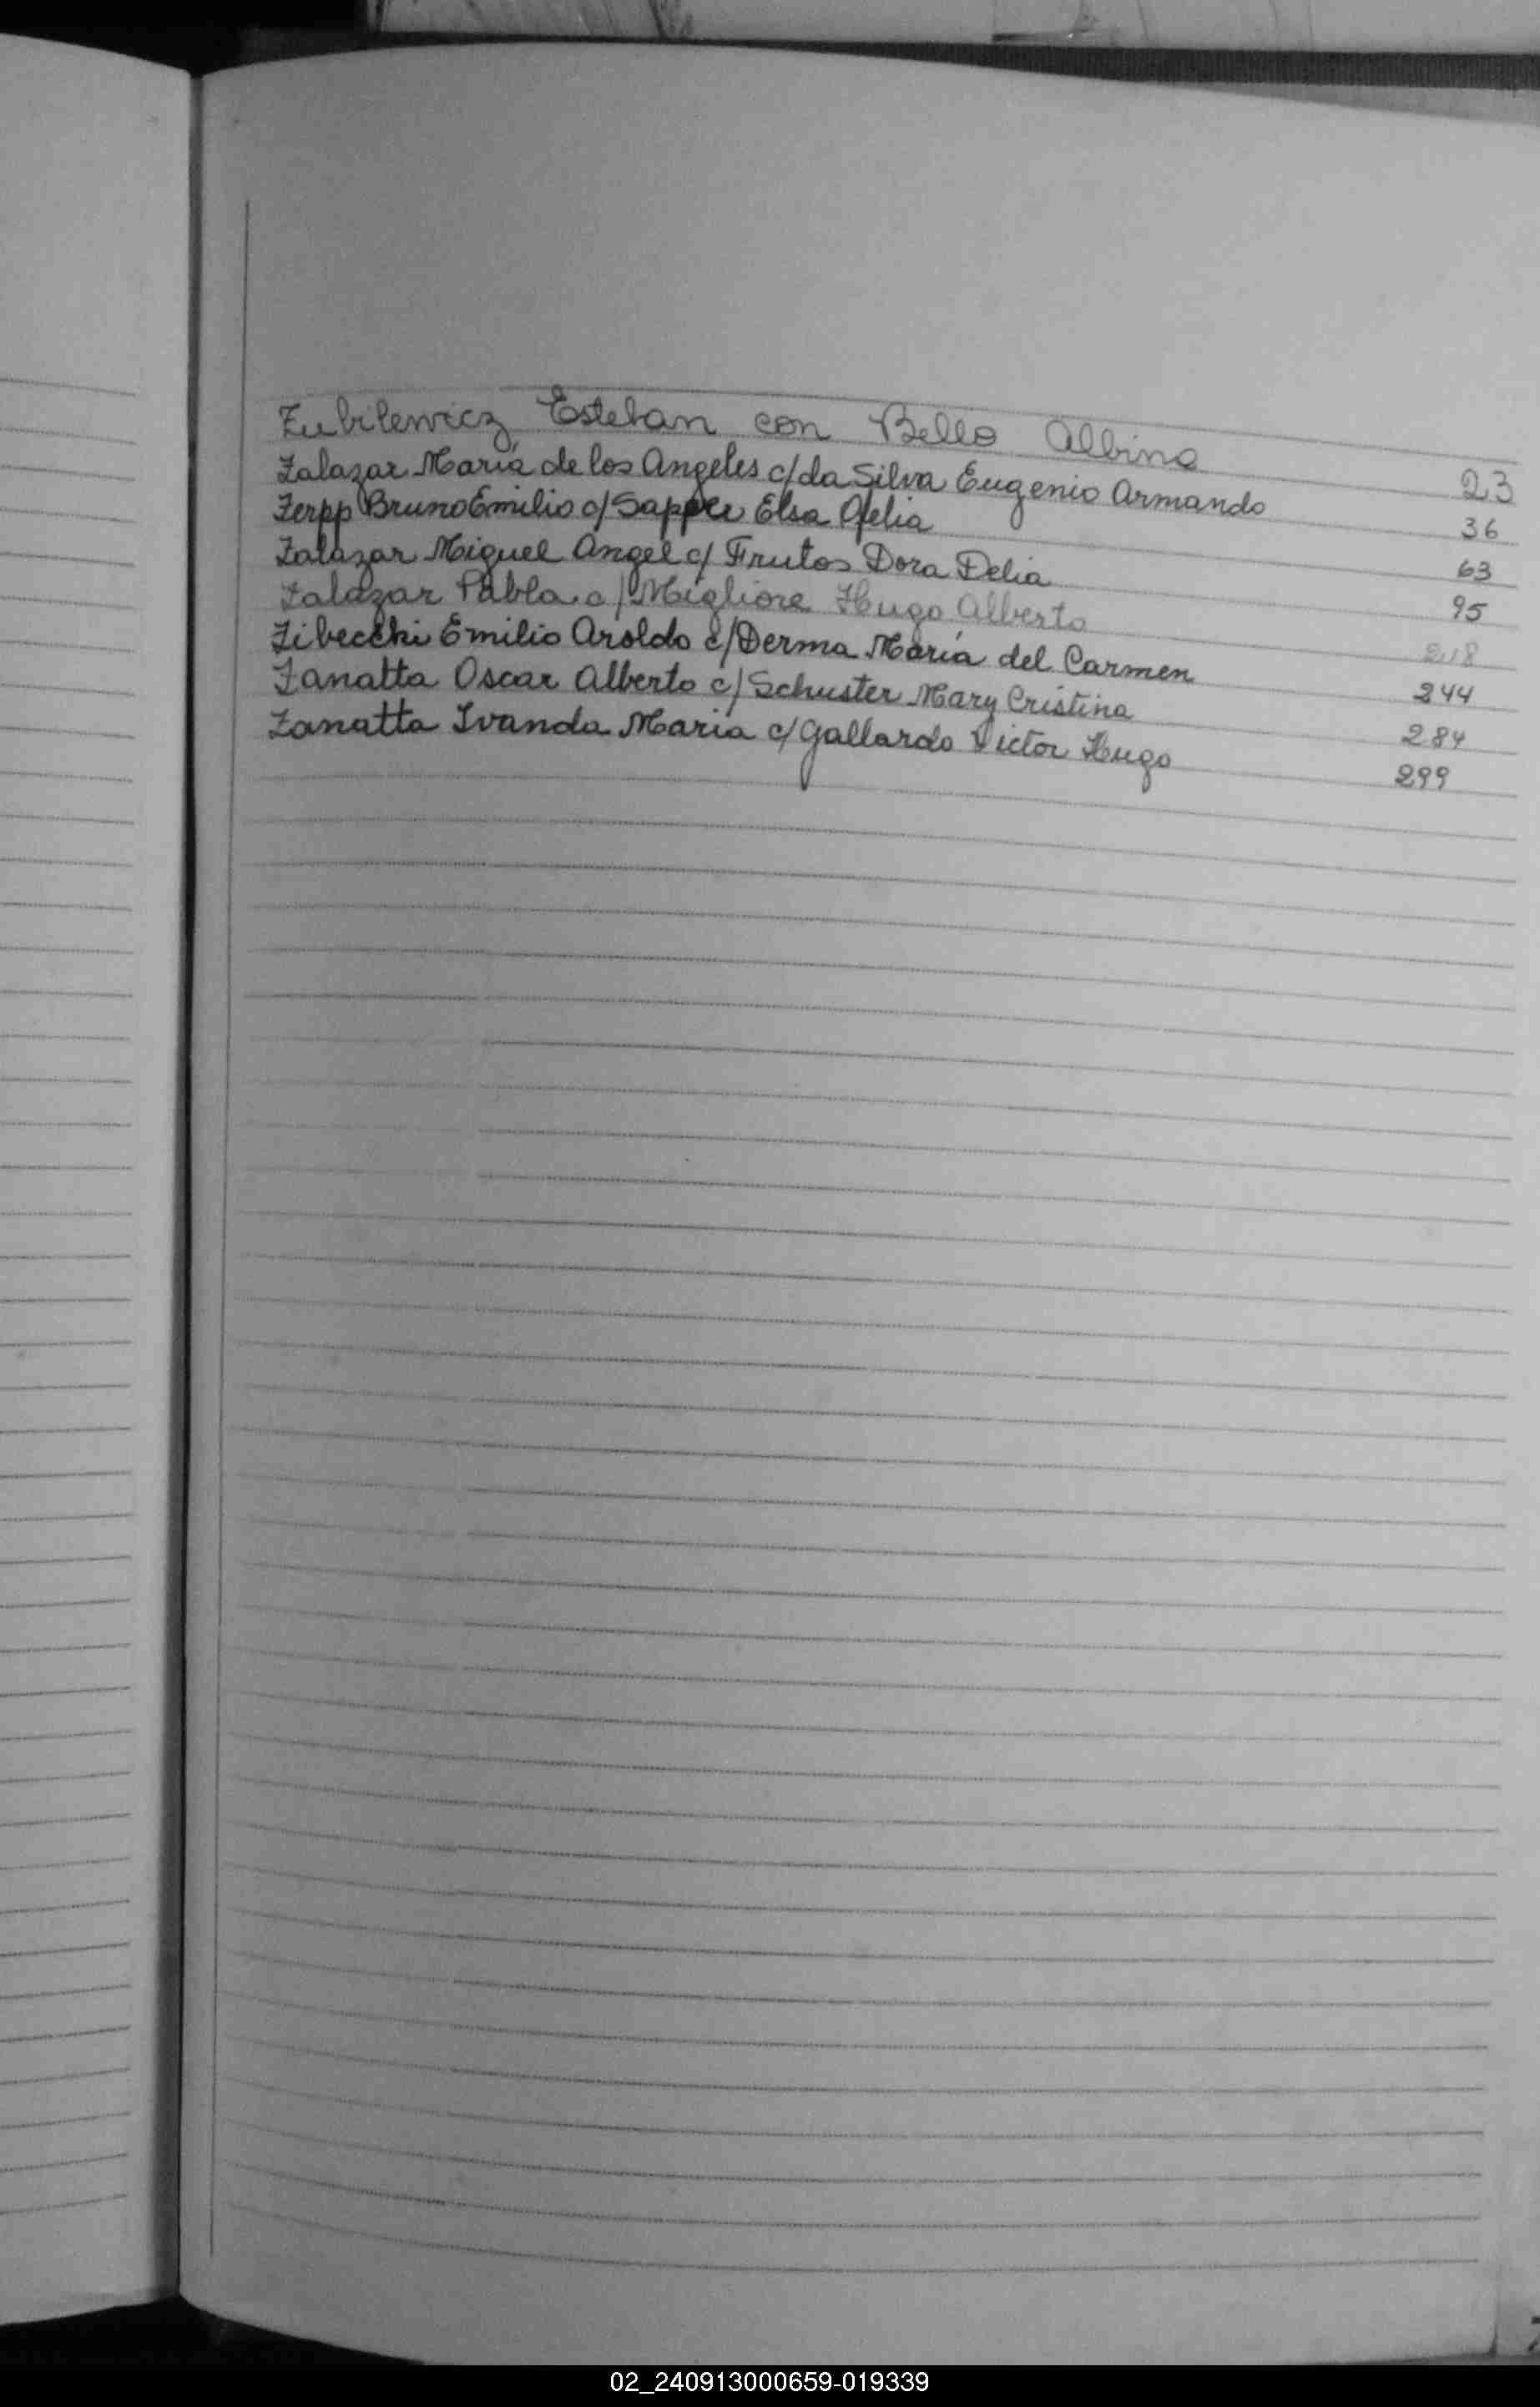 Zubilewicz Esteban con Bello Albina 23
Zalazar María de los Angeles c/ da Silva Eugenio Armando 36
Zerpp Bruno Emilio c/ Elsa Ofelia 63
Zalazar Miguel Angel c/ Frutos Dora Delia 95
Zalazar Pabla c/ Migliore Hugo Alberto 218
Zibecchi Emilio Aroldo c/ Derma María del Carmen 244
Zanatta Oscar Alberto c/ Schuster Mary Cristina 284
Zanatta Ivanda María c/ Gallardo Victor Hugo 299
02_240913000659-019339